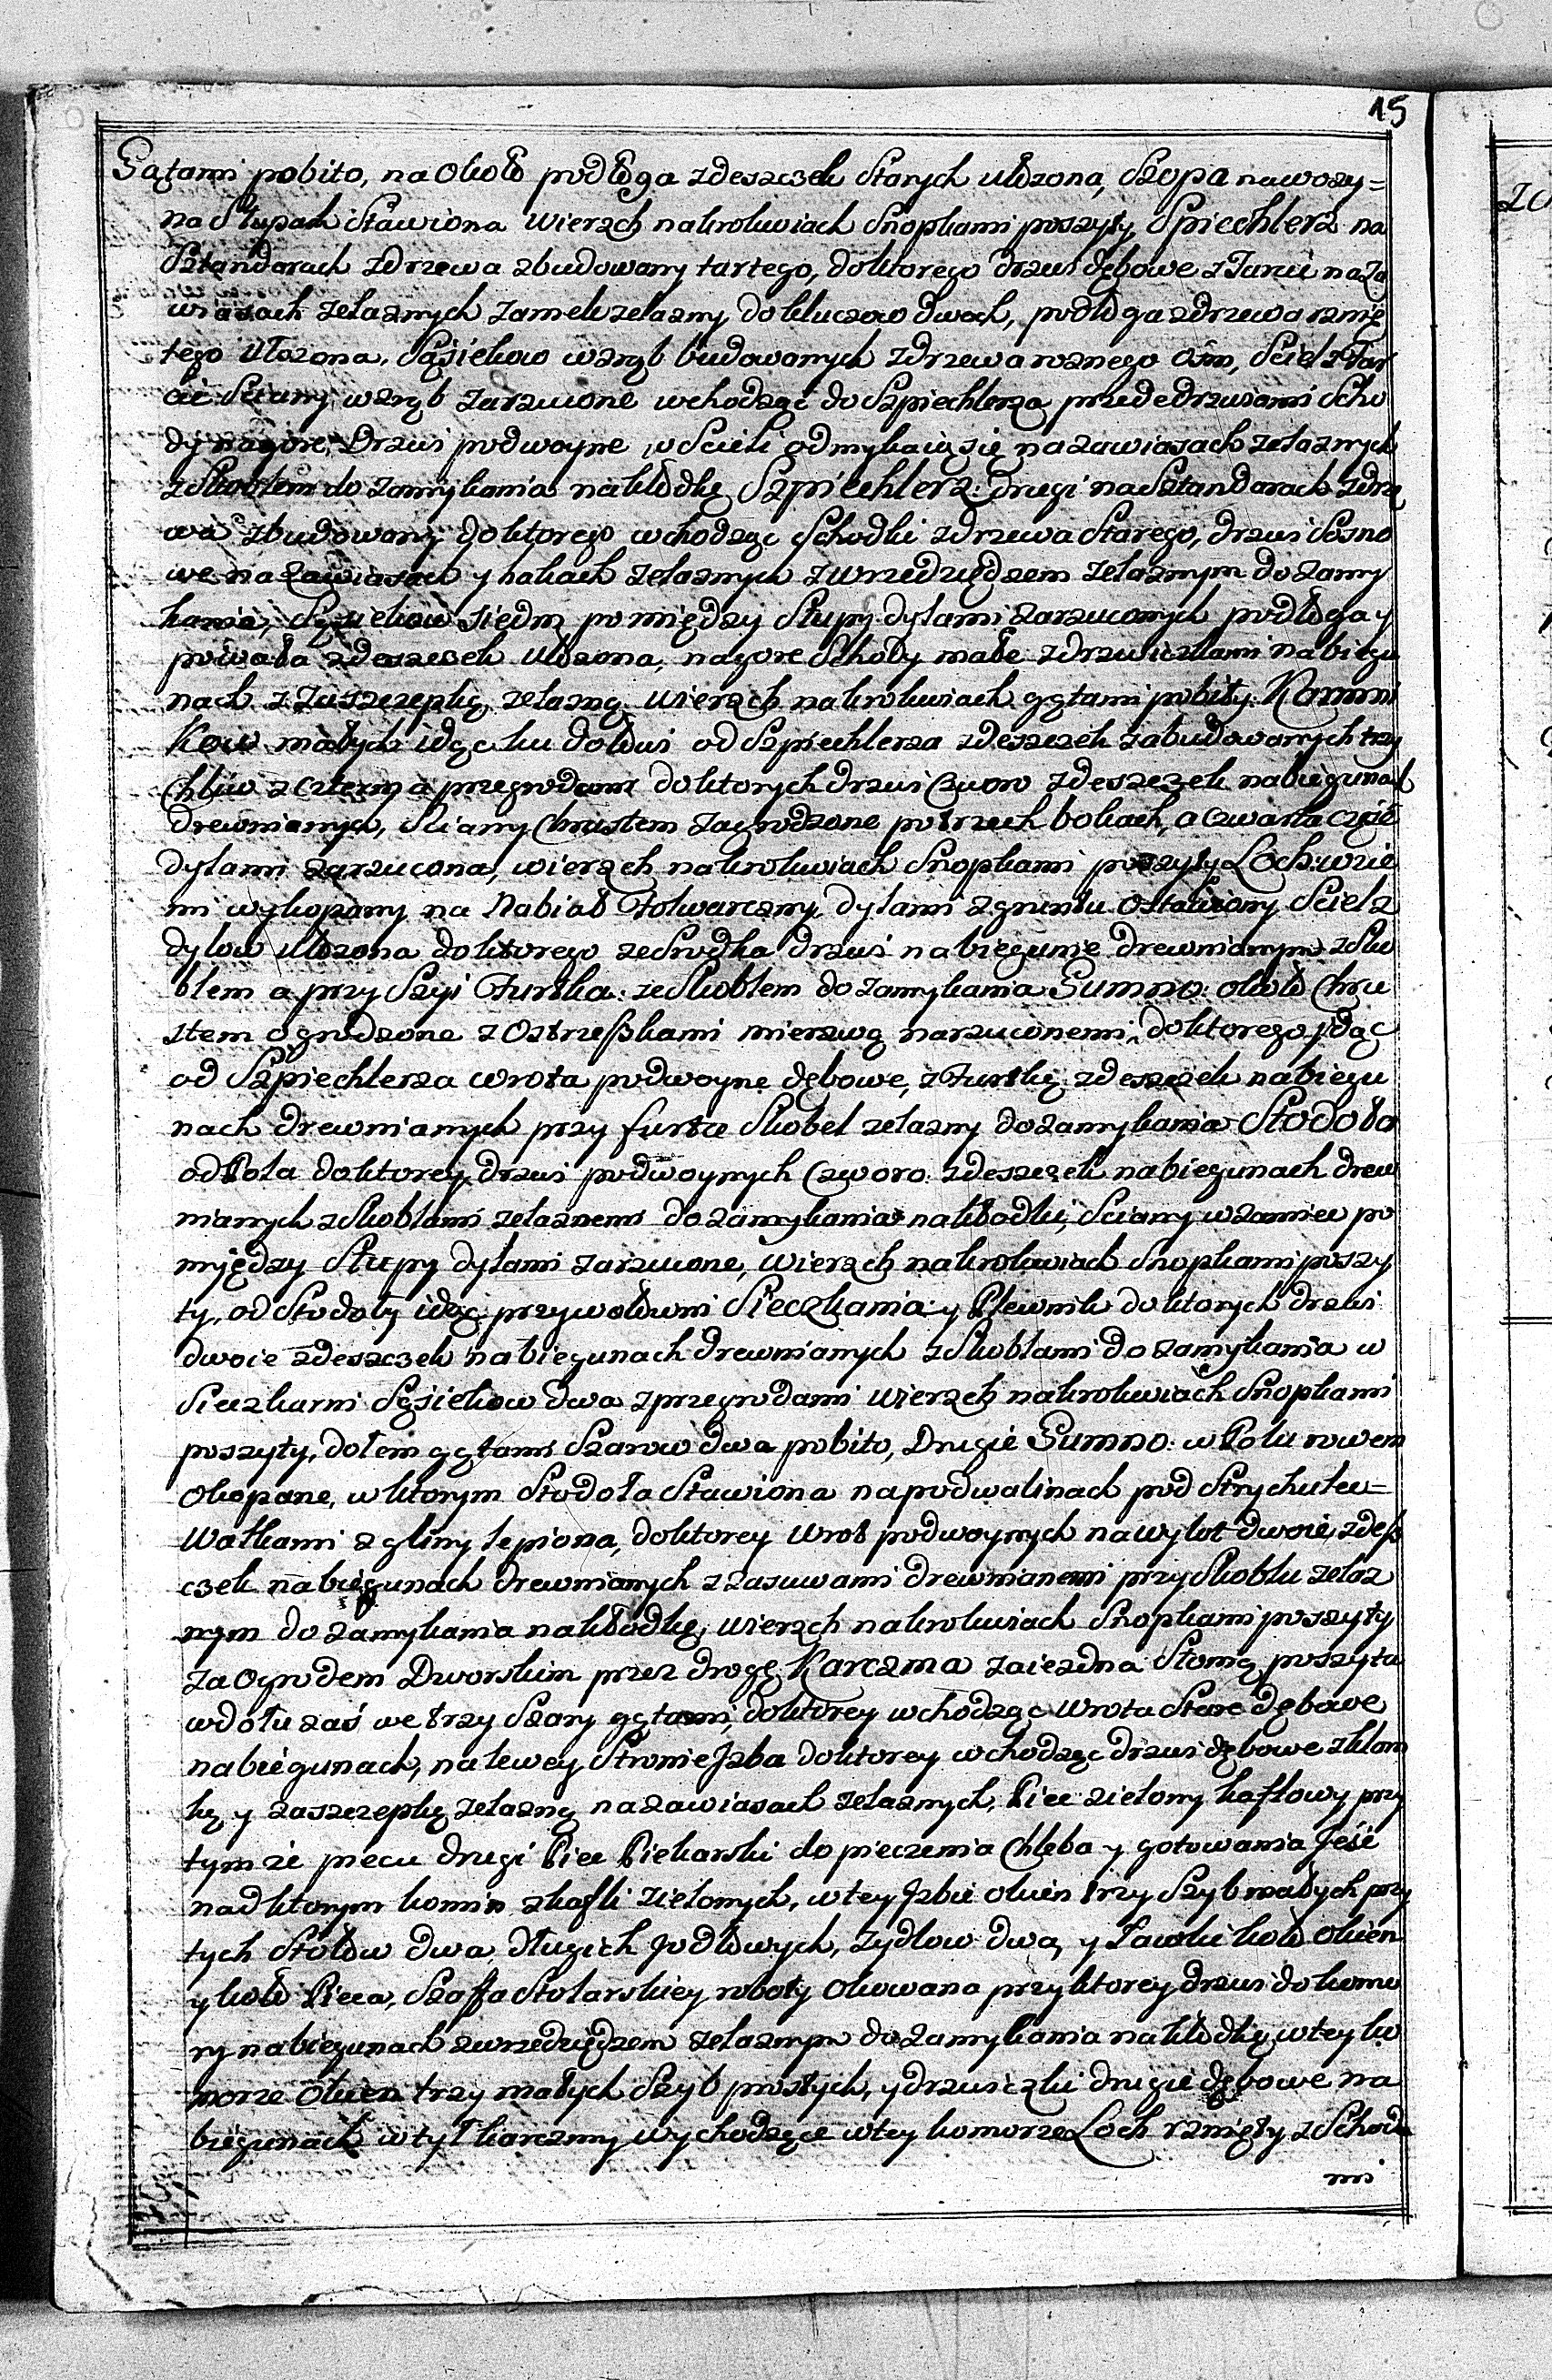 15
Gątami pobito, na około podłoga z deszczek starych ułożona, Szopa na wozy=
na Słupach Stawiona wierzch na krokwiach Snopkami poszyty, Spiechlerz na
Sztandarach z drzewa zbudowany tartego, do ktorego drzwi dębowe z Tarcic na za
wiasach zelaznych zamek zelazny do kluczow dwoch, podłoga z drzewa rznię
tego ułozona, Sąsiekow w zrąb budowanych z drzewa rznego ośm, Sciel z Tar
cic Sciany w zrąb zarzucone wchodząc do Szpiechlerza przede drzwiami Scho
dy na gore, Drzwi podwoyne w Scieli odmykaią się na zawiasach zelaznych
z Skoblem do zamykania na kłodkę Szpiechlerz: drugi na Sztandarach z drze
wa zbudowany do ktorego wchodząc Schodki z drzewa Starego, drzwi Sosno
we na zawiasach y hakach zelaznych z wrzedziędzem zelaznym do zamy
kania, Sąsiekow siedm pomiędzy Słupy dylami zarzuconych podłoga y
powała z deszczek ułozona, na gore Schody małe z drzwiczkami na biegu
nach z zaszczepką zelazną wierzch na krokwiach gątami pobity. Karmni
kow małych idąc ku dołowi od Szpiechlerza z deszczek zabudowanych trzy
Chliw z czterma przegrodami do ktorych drzwi czworo z deszczek na biegunach
drewnianych, Sciany Chrustem zagrodzone po trzech bokach, a czwarta część
dylami zarzucona, wierzch na krokwiach Snopkami poszyty Loch: w zie
mi wykopany na Nabiał Folwarczny dylami z gruntu ostawiony Sciel z
dylow ułozona do ktorego ze Srodka drzwi na biegunie drewnianym z Sko
blem a przy Szyi Furtka: ze Skoblem do zamykania Gumno: około Chru
stem ogrodzone z Ostrzeszkami mierzwą narzuconemi, do ktorego idąc
od Szpiechlerza wrota podwoyne dębowe, z Furtką z deszczek na biegu
nach drewnianych przy furtce Skobel zelazny do zamykania Stodoła
od Pola do ktorey drzwi podwoynych czworo z deszczek na biegunach drew
nianych z Skoblami zelaznemi do zamykania na kłodki, Sciany w zamiec po
między Słupy dylami zarzucone, wierzch na krokwiach Snopkami poszy
ty, od Stodoły idąc przy wołowni Sieczkarnia y Plewnik do ktorych drzwi
dwoie z deszczek na biegunach drewnianych z Skoblami do zamykania w
Sieczkarni Sąsiekow dwa z przegrodami wierzch na krokwiach Snopkami
poszyty, dołem gątami Szarow dwa pobito, Drugie Gumno: w Polu rowem
okopane, w ktorym Stodoła Stawiona na podwalinach pod Strychulec=
Wałkami z gliny lepiona, do ktorey wrot podwoynych na wylot dwoie z desz
czek na biegunach drewnianych z zasuwami drewnianemi przy Skoblu zelaz
nym do zamykania na kłodkę, wierzch na krokwiach Snopkami poszyty
za Ogrodem Dworskim przez drogę Karczma zaiezdna Słomą poszyta
w dołu zaś we trzy Szary gątami, do ktorey wchodząc wrota Stare dębowe
na biegunach, na lewey Stronie Jzba do ktorey wchodząc drzwi dębowe z klam
ką y zaszczepką zelazną na zawiasach zelaznych, Piec zielony kaflowy przy
tym ze piecu drugi Piec Piekarski do pieczenia Chleba y gotowania Jeść
nad ktorym komin z kafli zielonych, w tey Jzbie okien trzy Szyb małych przy
tych Stołow dwa długich Jodłowych, zydlow dwa y Ławki koło okien
y koło Pieca, Szaffa Stolarskiey roboty okowana przy ktorey drzwi do komo
ry na biegunach z wrzedziędzem zelaznym do zamykania na kłodkę w tey ko
morze Okien trzy małych Szyb prostych, y drzwiczki drugie dębowe na
biegunach w tył karczmy wychodzące w tey komorze Loch rznięty z Schoda
mi